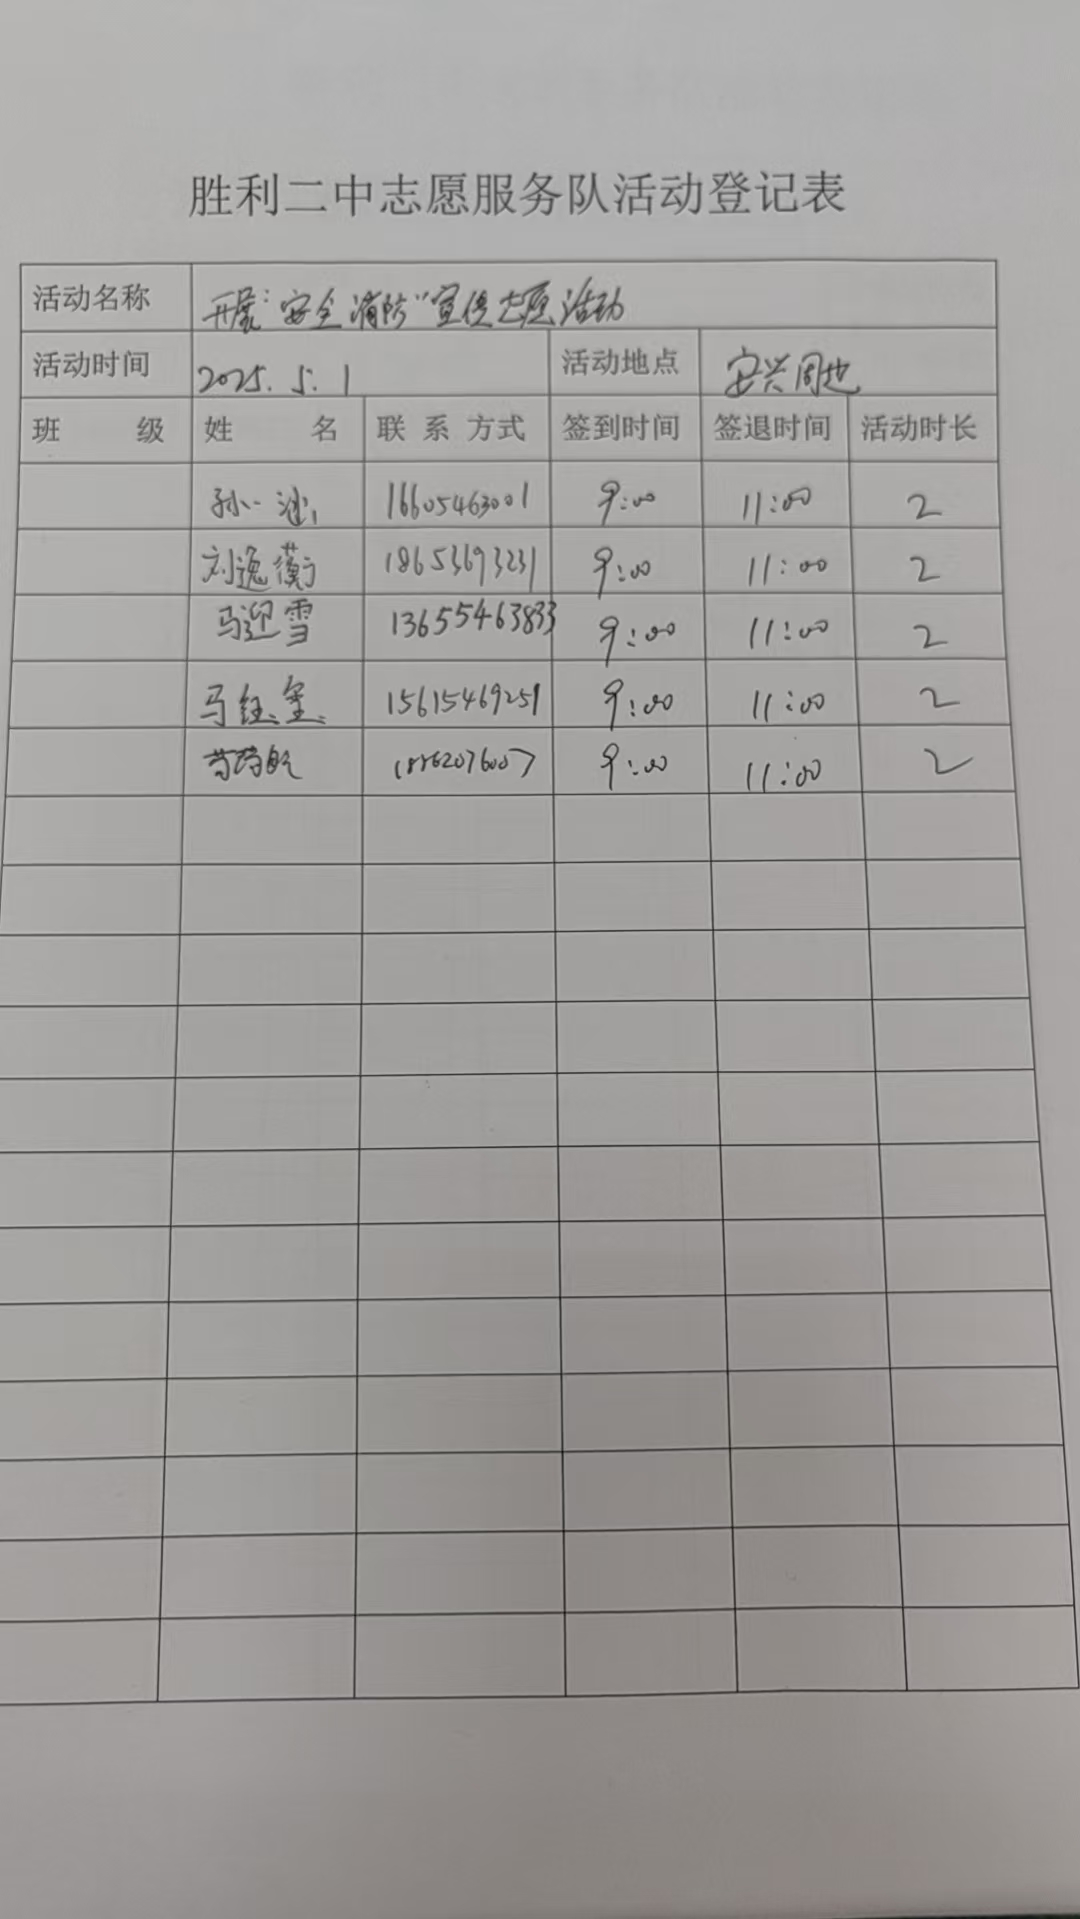 胜利二中志愿服务队活动登记表
活动名称 开展“安全消防”宣传志愿活动
活动时间 2025.5.1 活动地点 安兴周边
班 级 姓 名 联 系 方式 签到时间 签退时间 活动时长
孙一涵 16605463001 9:00 11:00 2
刘逸蘅 18653693231 9:00 11:00 2
马迎雪 13655463833 9:00 11:00 2
马 15615469251 9:00 11:00 2
9:00 11:00 2